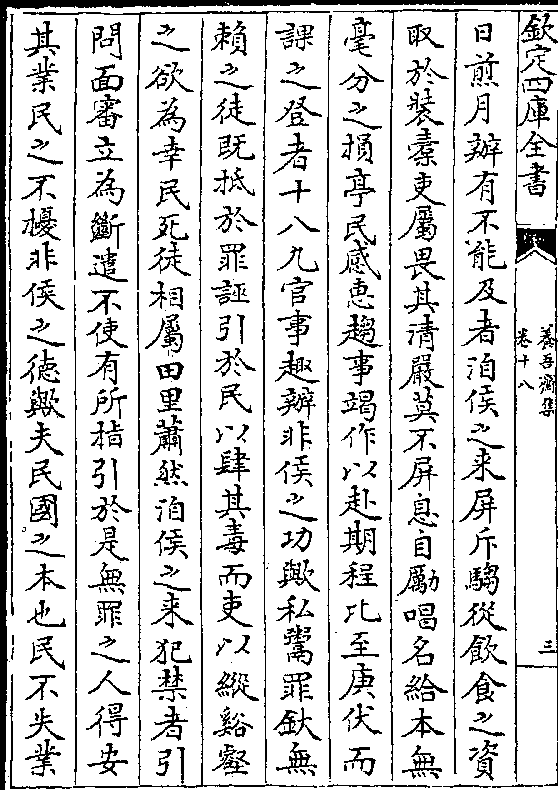 欽定四庫全書
養吾齋集
卷十八
三
日煎月辦有不能及者洎侯之来屏斥騶從飲食之資
取於裝橐吏屬畏其清嚴莫不屏息自勵唱名給本無
毫分之損亭民感恵趨事竭作以赴期程比至庚伏而
課之登者十八九官事趣辦非侯之功歟私鬻罪釱無
賴之徒既抵於罪誣引於民以肆其毒而吏以縱谿壑
之欲為幸民死徒相屬田里蕭然洎侯之来犯禁者引
問面審立為斷遣不使有所指引於是無罪之人得安
其業民之不擾非侯之徳歟夫民國之本也民不失業